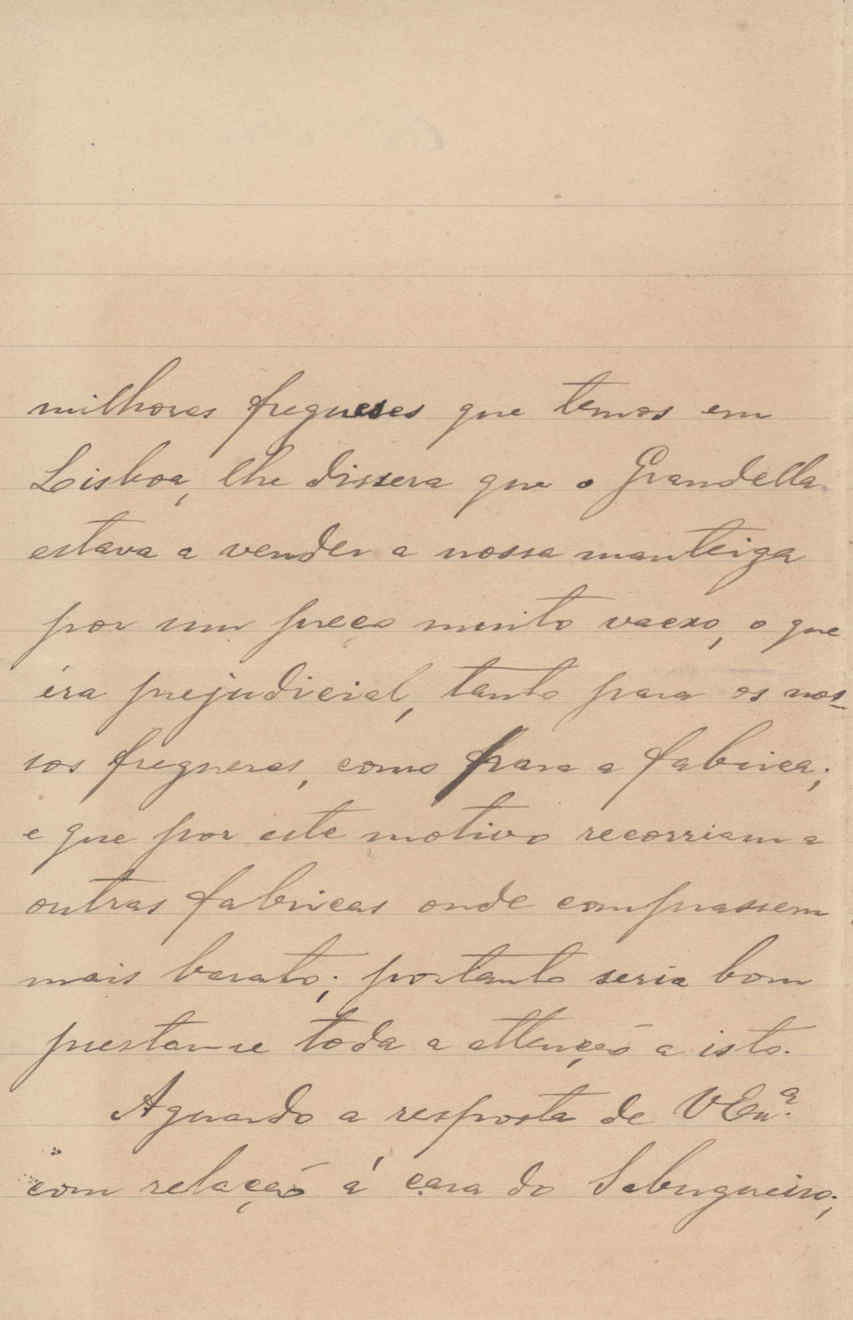 milhores freguezes que temos em
Lisboa, lhe dissera que o Grandella
estava a vender a nossa manteiga
por um preço muito vaexo, o que
éra prejudicial, tanto para os nos-
sos freguezes, como para a fabrica;
e que por este motivo recorriam a
outras fabricas onde comprassem
mais barato; portanto seria bom
prestar-se toda a attenção a isto.
Aguardo a resposta de V Exª.
com relação á casa do Sabugueiro;